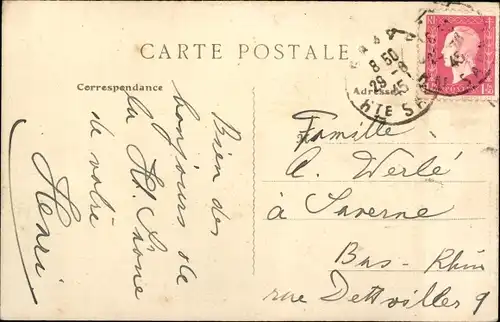 CARTE POSTALE
Correspondance
Adresse
8 50
29 - 8
45
HTE SA
Bien des
bonjours de
la Hte. Saône
de votre
Henri
Famille
A. Werlé
à Saverne
Bas-Rhin
rue Dettviller 9